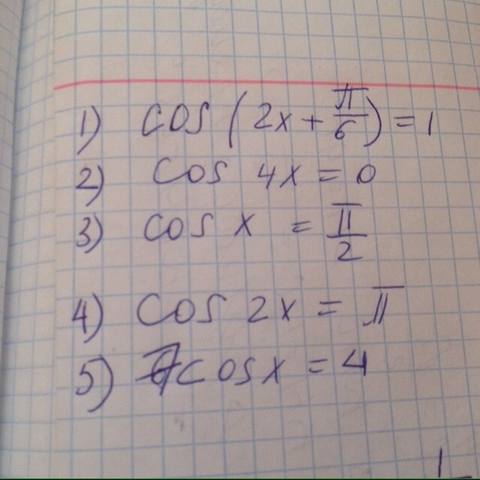 1) cos (2x + π/6) = 1
2) cos 4x = 0
3) cos x = π/2
4) cos 2x = π
5) cos x = 4